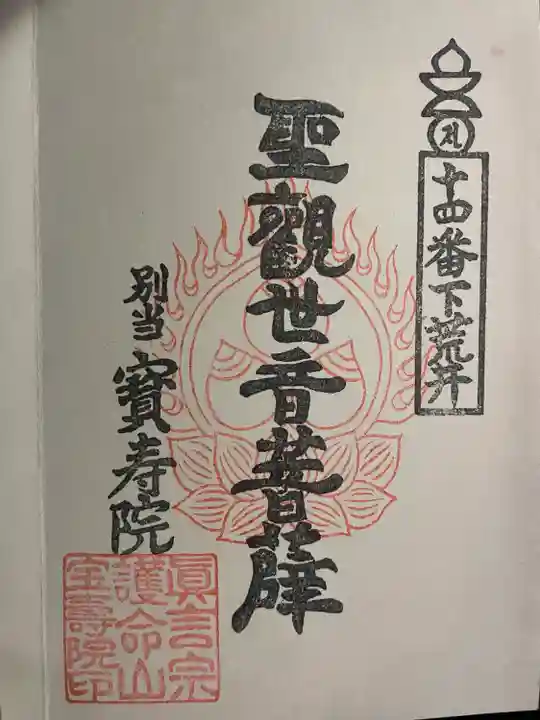 札
十四番下荒井
聖觀世音菩薩
別当寳寿院
眞言宗
護命山
宝壽院印